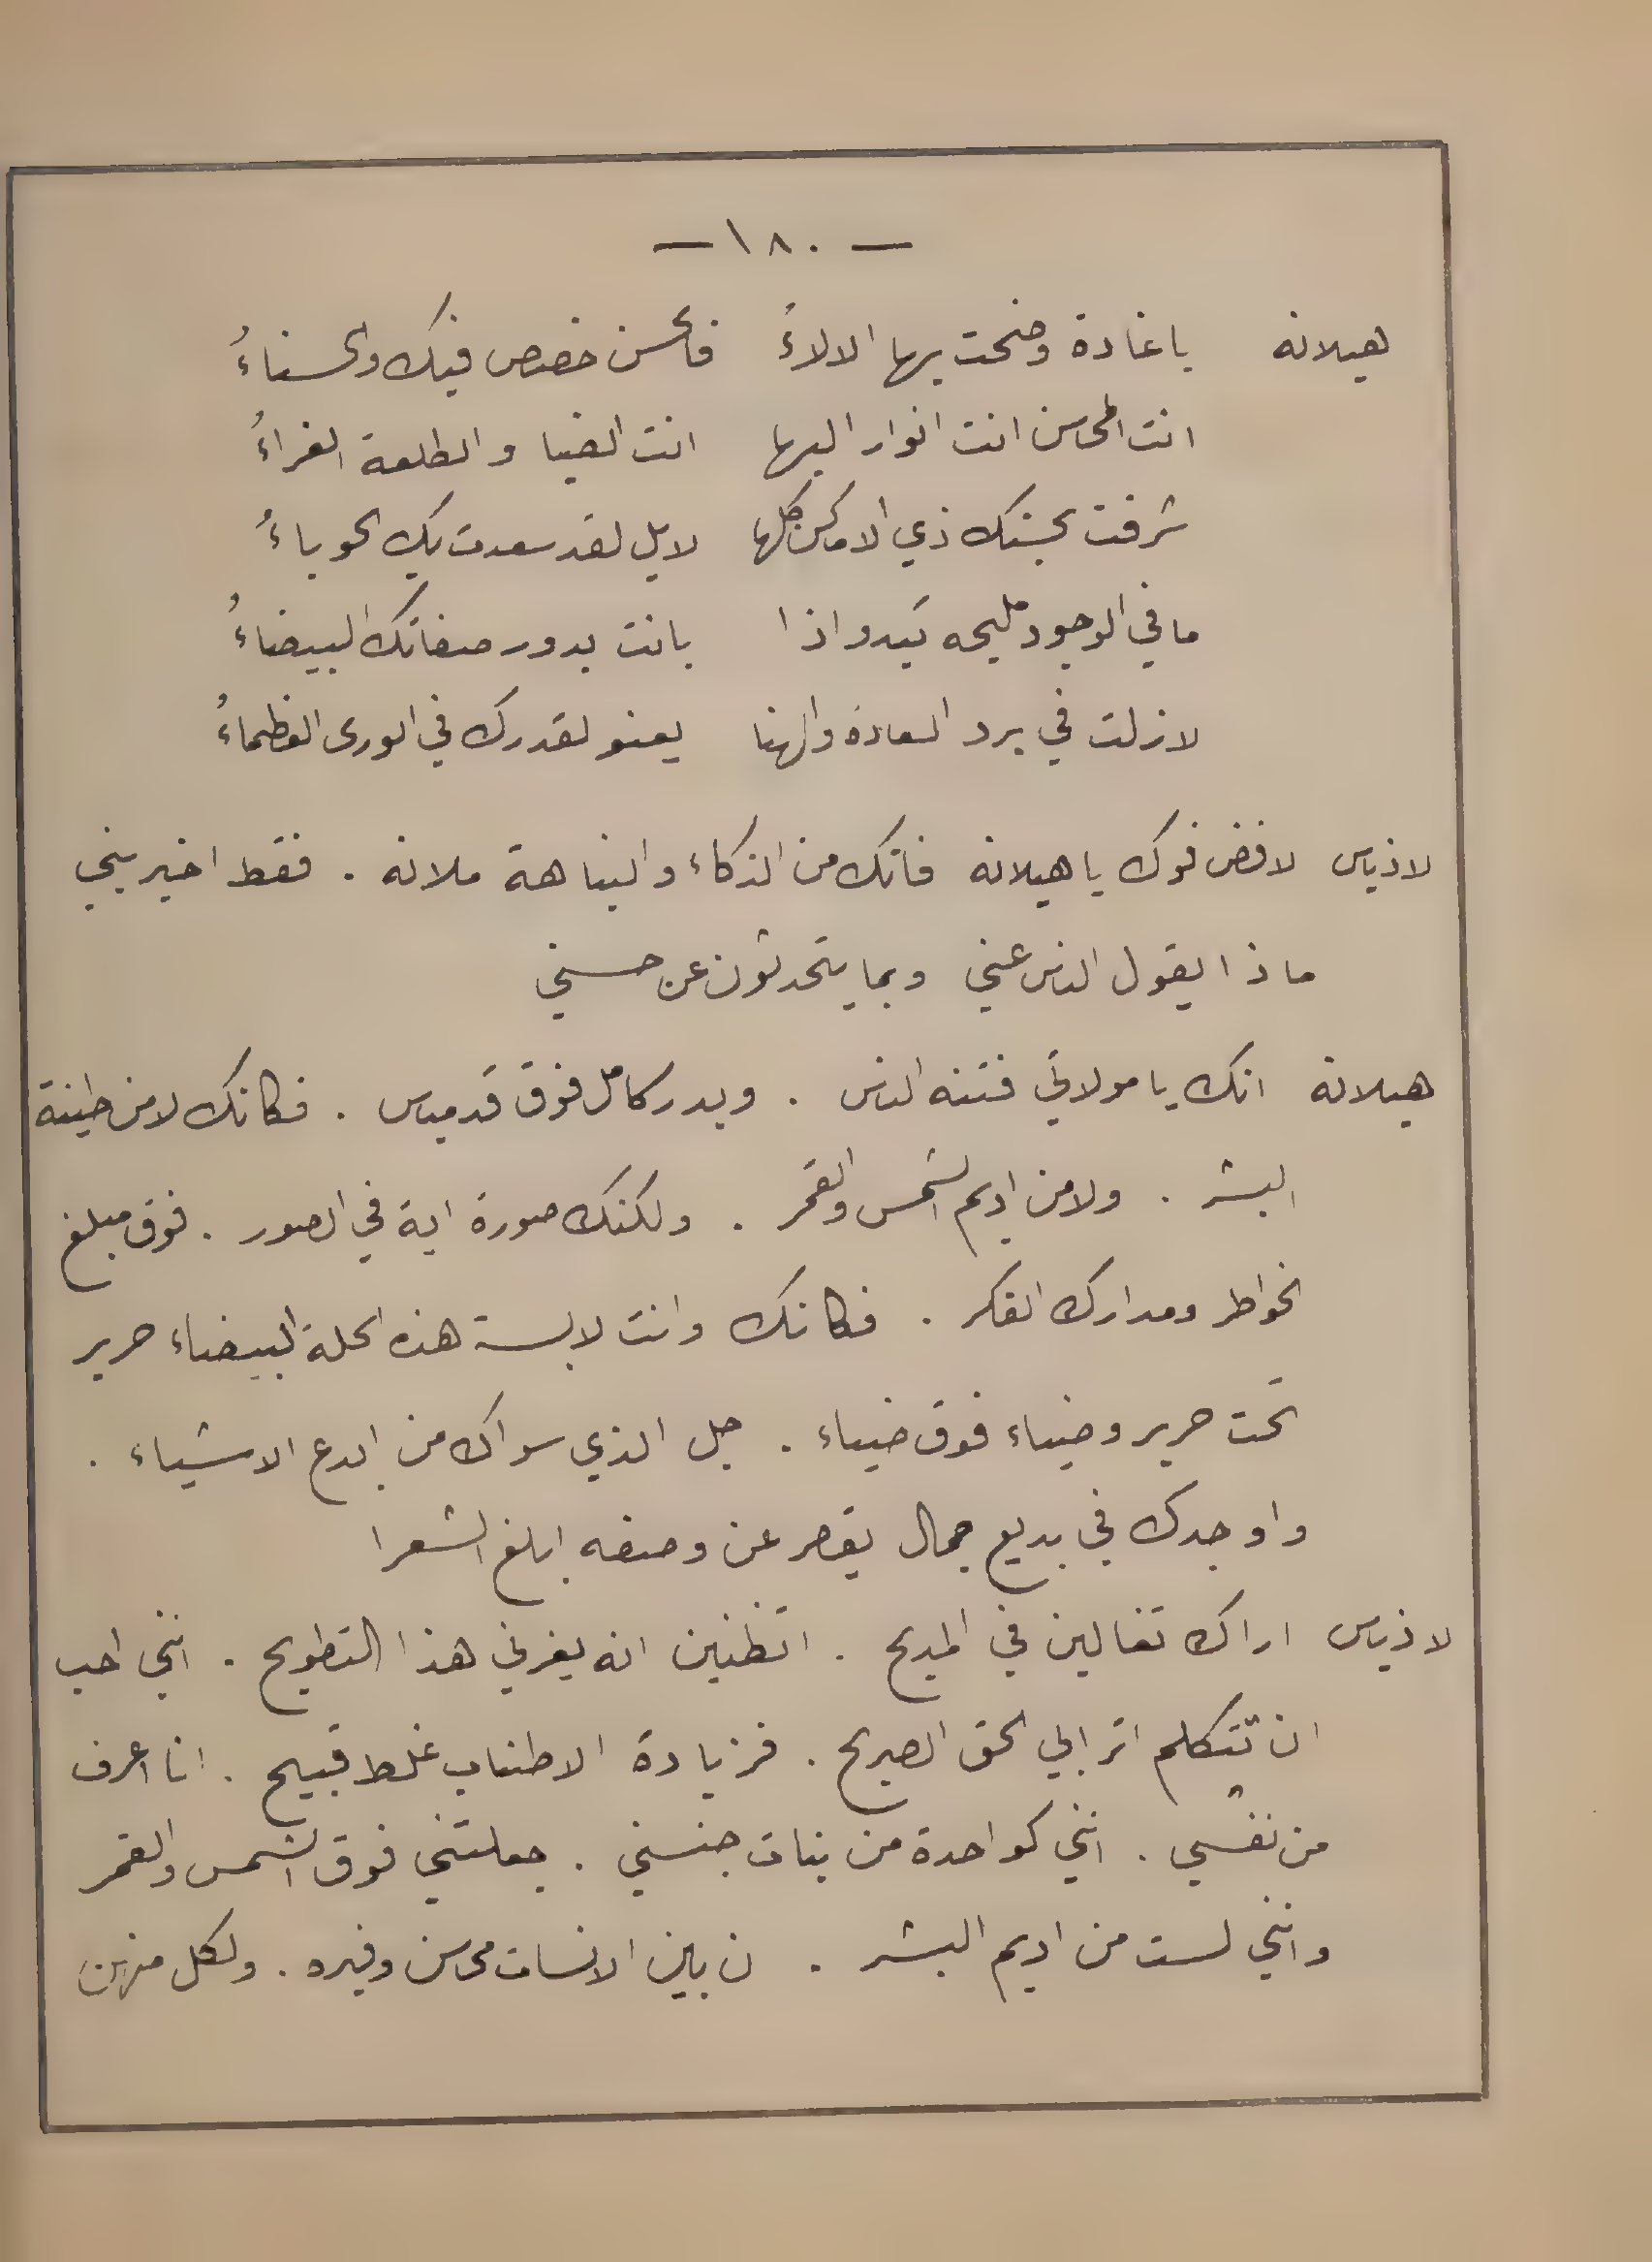 — ١٨٠ —
هيلانه يا غادة وضحت بها الالاءُ فالحسن خصص فيك والحسناءُ
انت المحاسن انت انوار البها انت الضيا والطلعة الغراءُ
شرفت بحسنك ذي الاماكن كلها لا بل لقد سعدت بك الحوباءُ
ما في الوجود مليحه تبدو اذا بانت بدور صفاتك البيضاءُ
لازلت في برد السعادة والهنا يعنو لقدرك في الورى العظماءُ
لاذياس لا فض فوك يا هيلانه فانك من الذكاء والنباهة ملانه . فقط اخبريني
ماذا يقول الناس عني وبما يتحدثون عن حسني
هيلانه انك يا مولاتي فتنه الناس . وبدر كامل فوق قد مياس . فكانك لا من طينة
البشر . ولا من اديم الشمس والقمر . ولكنك صورة اية في الصور . فوق مبلغ
الخواطر ومدارك الفكر . فكانك وانت لابسة هذه الحلة البيضاء حرير
تحت حرير وضياء فوق ضياء . جل الذي سواك من ابدع الاشياء .
واوجدك في بديع جمال يقصر عن وصفه ابلغ الشعرا
لاذياس اراك تغالين في المديح . اتظنين انه يغرني هذا التطويح . انني احب
ان تتكلم اترابي الحق الصريح . فزيادة الاطناب غلط قبيح . انا اعرف
من نفسي . انني كواحدة من بنات جنسي . جعلتني فوق الشمس والقمر
وانني لست من اديم البشر . ان بين الانسات محاسن وفيره . ولكل منهن